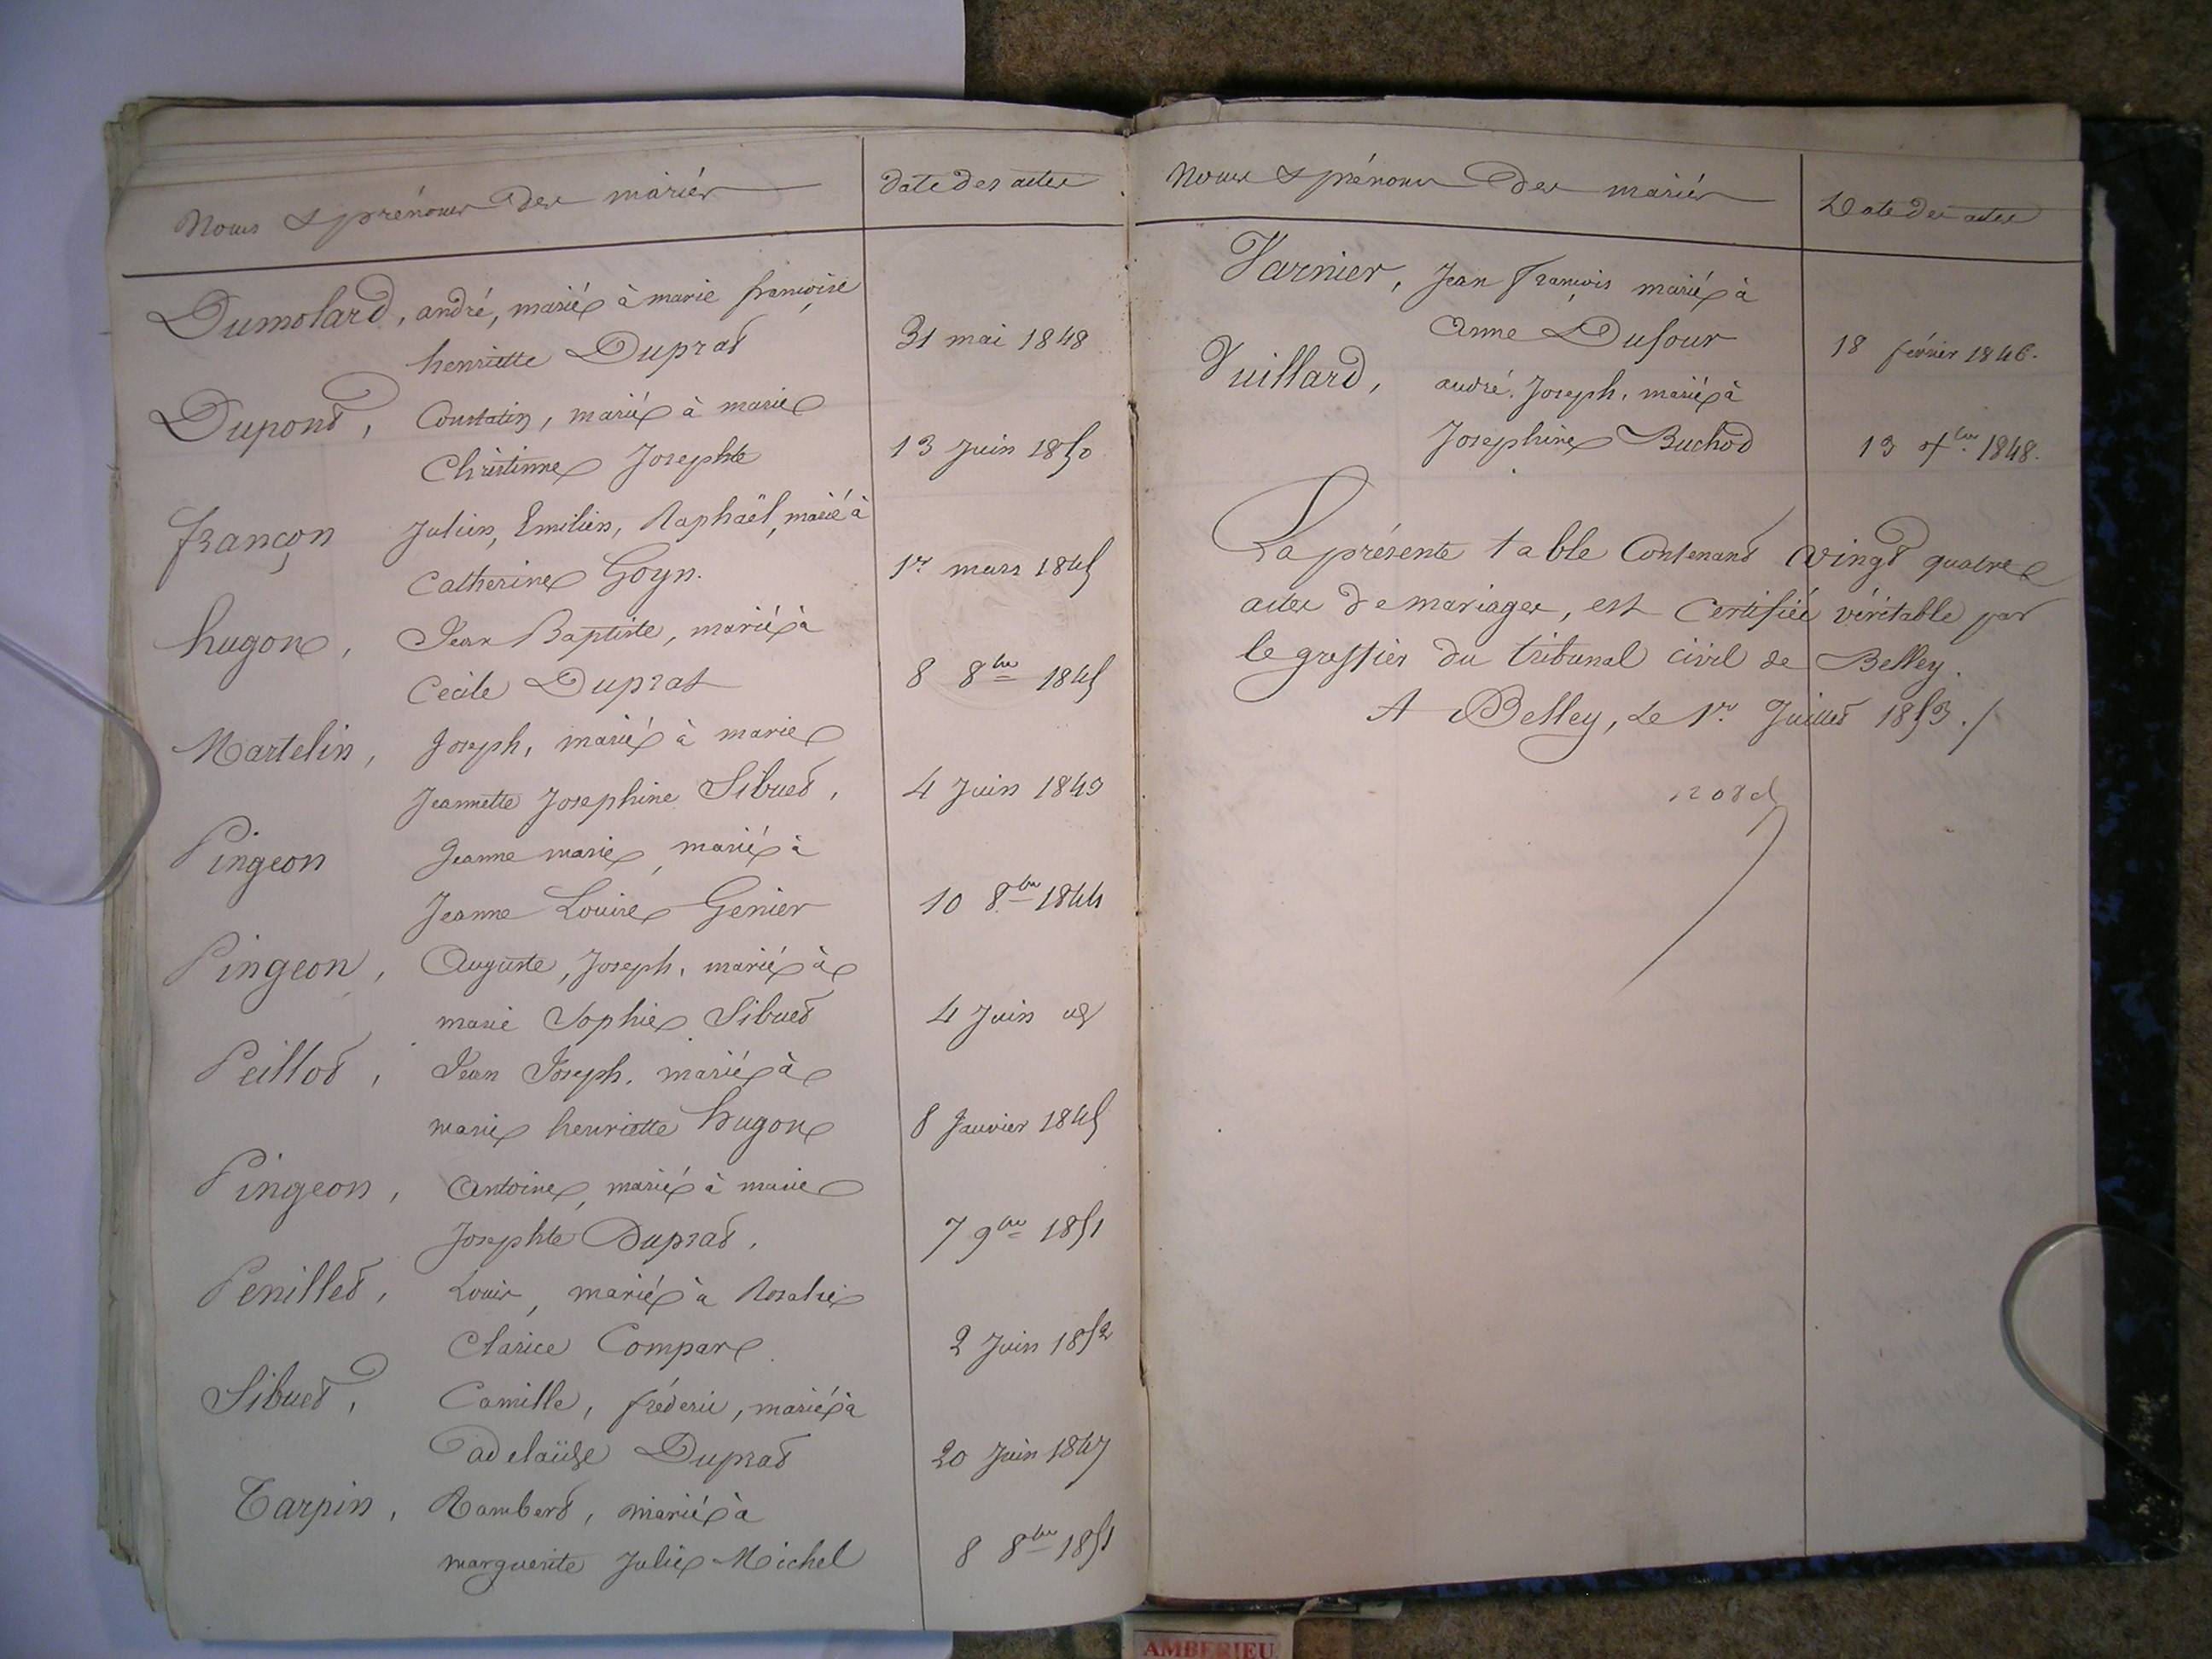 Noms & prénoms des mariés
Date des actes
Dumolard, andré, marié à marie françoise
henriette Duprat
31 mai 1848
Dupont, Constatin, marié à marie
Christinne Josephte
13 Juin 1850
françon Julien, Emilien, Raphaël, marié à
Catherine Goyn.
1er mars 1845
hugon, Jean Baptiste, marié à
Cecile Duprat
8 8bre 1845
Martelin, Joseph, marié à marie
Jeannette Josephine Sibuet,
4 Juin 1849
Pingeon Jeanne marie, marié à
Jeanne Louise Genier
10 8bre 1844
Pingeon, Auguste, Joseph, marié à
marie Sophie Sibuet
4 Juin
Peillot, Jean Joseph, marié à
marie henriette hugon
8 Janvier 1845
Pingeon, Antoine, marié à marie
Josephte Duprat,
7 9bre 1851
Penillet, Louis, marié à Rosalie
Clarice Compare
2 Juin 1852
Sibuet, Camille, fréderic, marié à
adelaïde Duprat
20 Juin 1847
Tarpin, Rambert, marié à
marguerite Julie Michel
8 8bre 1851
Noms & prénoms des mariés
Date des actes
Varnier, Jean François marié à
Anne Dufour
18 février 1846.
Vuillard, andré Joseph, marié à
Josephine Buchod
13 1848.
La présente table Contenant vingt quatre
actes de mariages, est Certifiée véritable par
le greffier du tribunal civil de Belley.
A Belley, le 1er Juillet 1853./
AMBERIEU